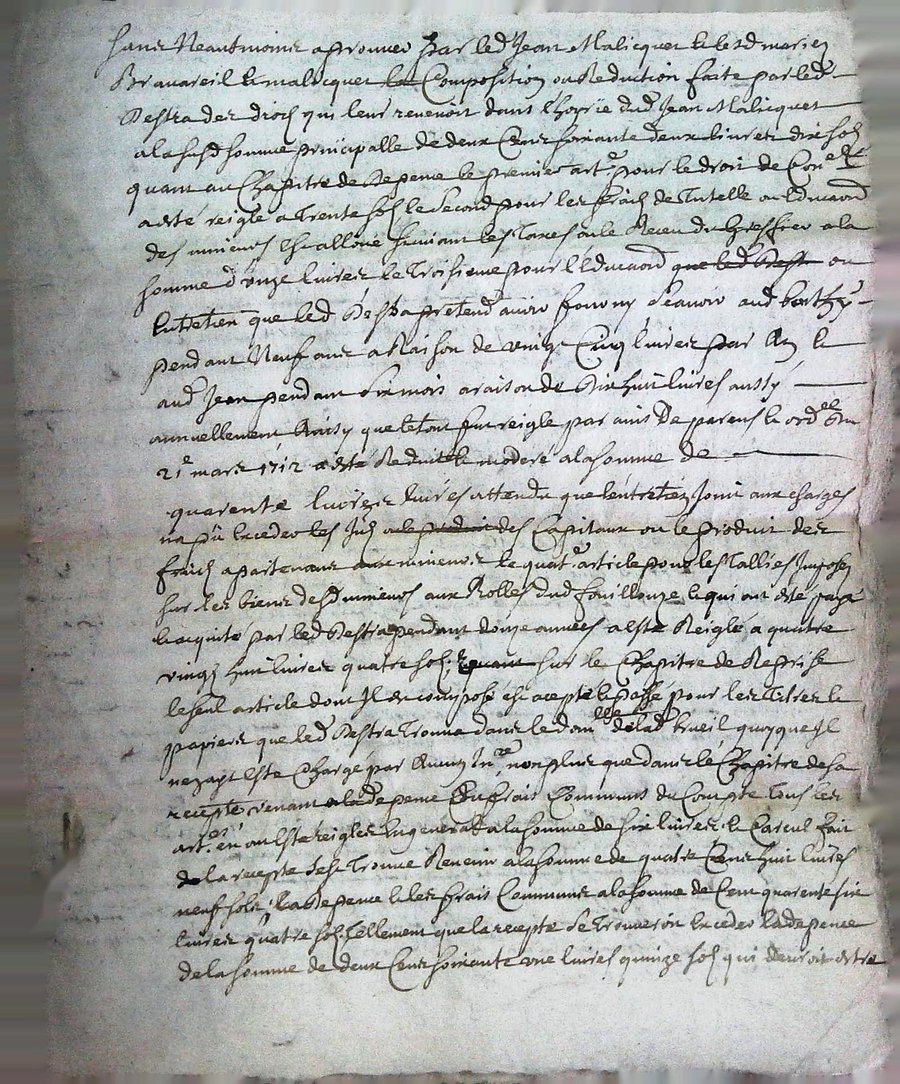 sans Neantmoins aprouver par led Jean Malicquet & lesd maries
Bravareil & malicquet la Composition ou Reduction faite par led
Pestra des droits qui leur revenoit dans l'hoyrie dud Jean Malicquet
a la susd somme principalle de deux Cens soixante deux livres dix sols
quant au Chapitre de depense le premier art.e pour le droit de Con.e
a esté reiglé a Trente sols le second pour les frais de Tutelle ou Educaon
des mineurs est alloué suivant les Taxes ou le Receu du Greffier a la
somme d'onze livres le Troisieme pour l'Educaon que led Pestra ou
Entretien que led Pestra pretend avoir fourny Scavoir aud
pendant Neuf ans a Raison de vingt Cinq livres par An &
aud Jean pendant six mois a raison de Dix huit livres aussy
annuellement Ainsy que le tout fut reiglé par avis de parens & ord.ce du
21e mars 1712 a esté Reduit & moderé a la somme de
quarente livres livres attendu que l'entretien Joint aux charges
na pû Exceder les Jnts ou le produit des Capitaux ou le produit des
fruits apartenans aux mineurs le quatr.e article pour les Tallies Imposés
sur les biens desd mineurs aux Rolles dud fouillouze & qui ont été payé
& acquité par led Pestra pendant douze années a Esté Reiglé a quatre
vingt huit livres quatre sols quant sur le Chapitre de Reprise
le seul article dont Jl est composé est acepté & passé pour les Titres &
papiers que led Pestra Trouva dans le dom.lle de lad breuil quoyque Jl
nezayt Esté Chargé par Aucun Jn.re non plus que dans le Chapitre de sa
recepte venant a la depense Ou frais Communs du Compte Tous les
art.es en on Esté reiglés En general a la somme de six livres le Calcul fait
de la recepte sest Trouvé Revenir a la somme de quatre Cens huit livres
neuf sols & la depense & les frais Communs a la somme de Cent quarente six
livres quatre sols Tellement que la recepte se Trouveroit Exceder la depense
de la somme de deux Cens soixante une livres quinze sols qui devroit estre